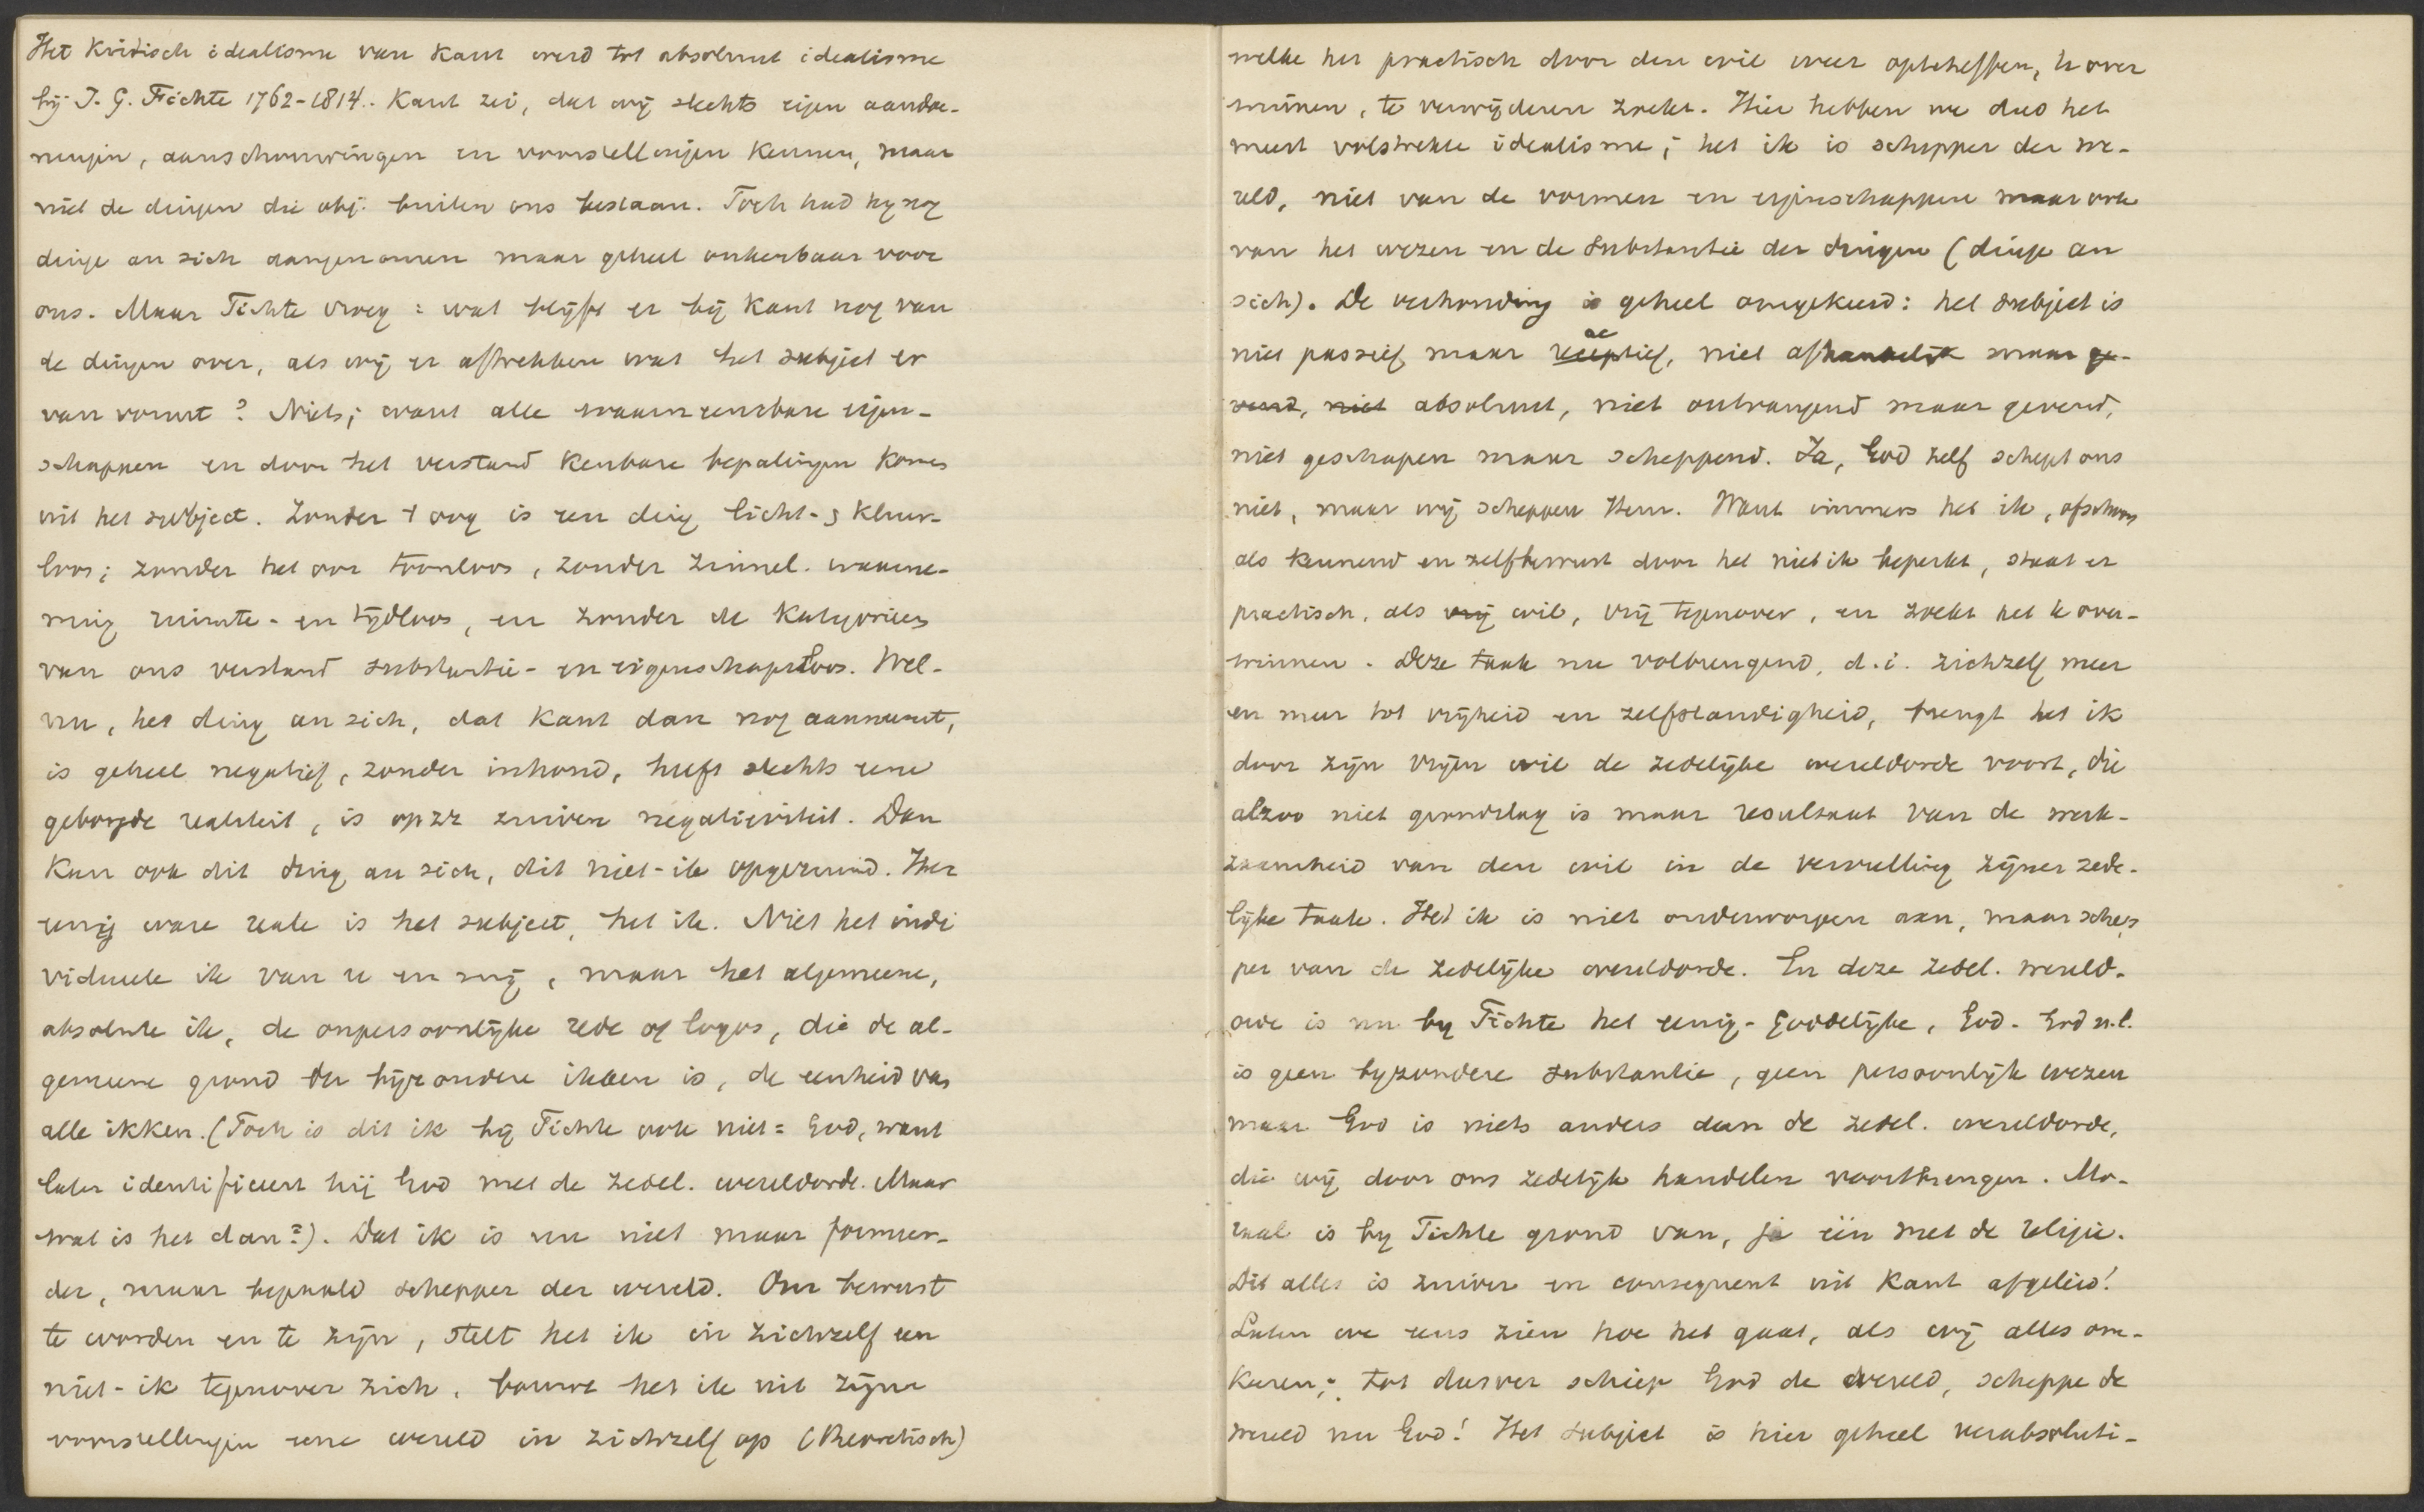 Het Kritisch idealisme van Kant werd tot absoluut idealisme
bij J. G. Fichte 1762-1814. Kant zei, dat wij slechts eigen aandoe-
ningen, aanschouwingen en voorstellingen kennen, maar
niet de dingen die obj. buiten ons bestaan. Toch had hy nog
dinge an sich aangenomen maar geheel onkenbaar voor
ons. Maar Fichte vroeg: wat blijft er bij Kant nog van
de dingen over, als wij er aftrekken wat het subject er
van vormt? Niets; want alle waarneembare eigen-
schappen en door het verstand Kenbare bepalingen Komen
uit het subject. Zonder t oog is een ding licht- & Kleur-
loos; zonder het oor toonloos, zonder zinnel. waarne-
ming ruimte- en tijdloos, en zonder de Kategorieën
van ons verstand substantie- en eigenschapsloos. Wel-
nu, het ding an sich, dat Kant dan nog aanneemt,
is geheel negatief, zonder inhoud, heeft slechts eene
geborgde realiteit, is op zz zuivere negativiteit. Dan
Kan ook dit ding an sich, dit niet-ik opgeruimd. Het
eenig ware reale is het subject, het ik. Niet het indi
vidueele ik van u en mij, maar het algemeene,
absolute ik, de onpersoonlijke rede of logos, die de al-
gemeene grond der bijzondere ikken is, de eenheid van
alle ikken. (Toch is dit ik bij Fichte ook niet = God, want
later identificeert hij God met de zedel. wereldorde. Maar
wat is het dan?). Dat ik is nu niet maar formeer-
der, maar bepaald schepper der wereld. Om bewust
te worden en te zijn, stelt het ik in zichzelf een
niet-ik tegenover zich, bouwt het ik uit zijne
voorstellingen eene wereld in zichzelf op (theoretisch)
welke het practisch door den wil weer opteheffen, te over
winnen, te verwijderen zoekt. Hier hebben we dus het
meest volstrekte idealisme; het ik is schepper der we-
reld, niet van de vormen en eigenschappen maar ook
van het wezen en de substantie der dingen (dinge an
sich). De verhouding is geheel omgekeerd: het subject is
niet passief maar receptief, niet afhankelijk maar ge-
vend, niet absoluut, niet ontvangend maar gevend,
niet geschapen maar scheppend. Ja, God zelf schept ons
niet, maar wij scheppen Hem. Want immers het ik, ofschoon
als kennend en zelfbewust door het niet ik beperkt, staat er
practisch, als vrij wil, vrij tegenover, en zoekt het te over-
winnen. Deze taak nu volbrengend, d.i. zichzelf meer
en meer tot vrijheid en zelfstandigheid, brengt het ik
door zijn vrijen wil de zedelijke wereldorde voort, die
alzoo niet grondslag is maar resultaat van de werk-
zaamheid van den wil in de vervulling zijner zede-
lijke taak. Het ik is niet onderworpen aan, maar schep
per van de zedelijke wereldorde. En deze zedel. wereld-
orde is nu by Fichte het eenig-Goddelijke, God. God n.l.
is geen byzondere substantie, geen persoonlijk wezen
maar God is niets anders dan de zedel. wereldorde,
die wij door ons zedelijk handelen voortbrengen. Mo-
raal is by Fichte grond van, ja één met de religie.
Dit alles is zuiver en consequent uit Kant afgeleid!
Laten we eens zien hoe het gaat, als wij alles om-
Keren; tot dusver schiep God de wereld, scheppe de
wereld nu God! Het subject is hier geheel verabsoluti-